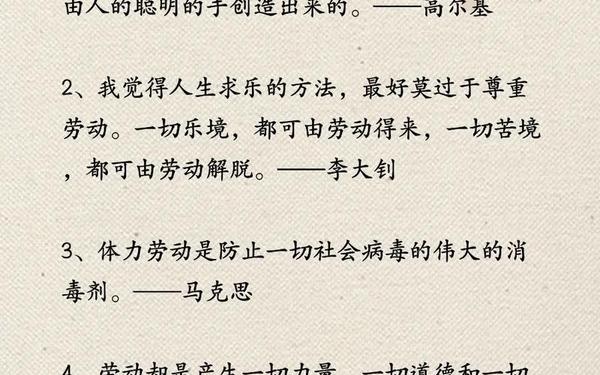 由人的聪明的手创造出来的。——高尔基
2、我觉得人生求乐的方法，最好莫过于尊重
劳动。一切乐境，都可由劳动得来，一切苦境
，都可由劳动解脱。——李大钊
3、体力劳动是防止一切社会病毒的伟大的消
毒剂。——马克思
4、劳动却是产生一切力量、一切道德和一切